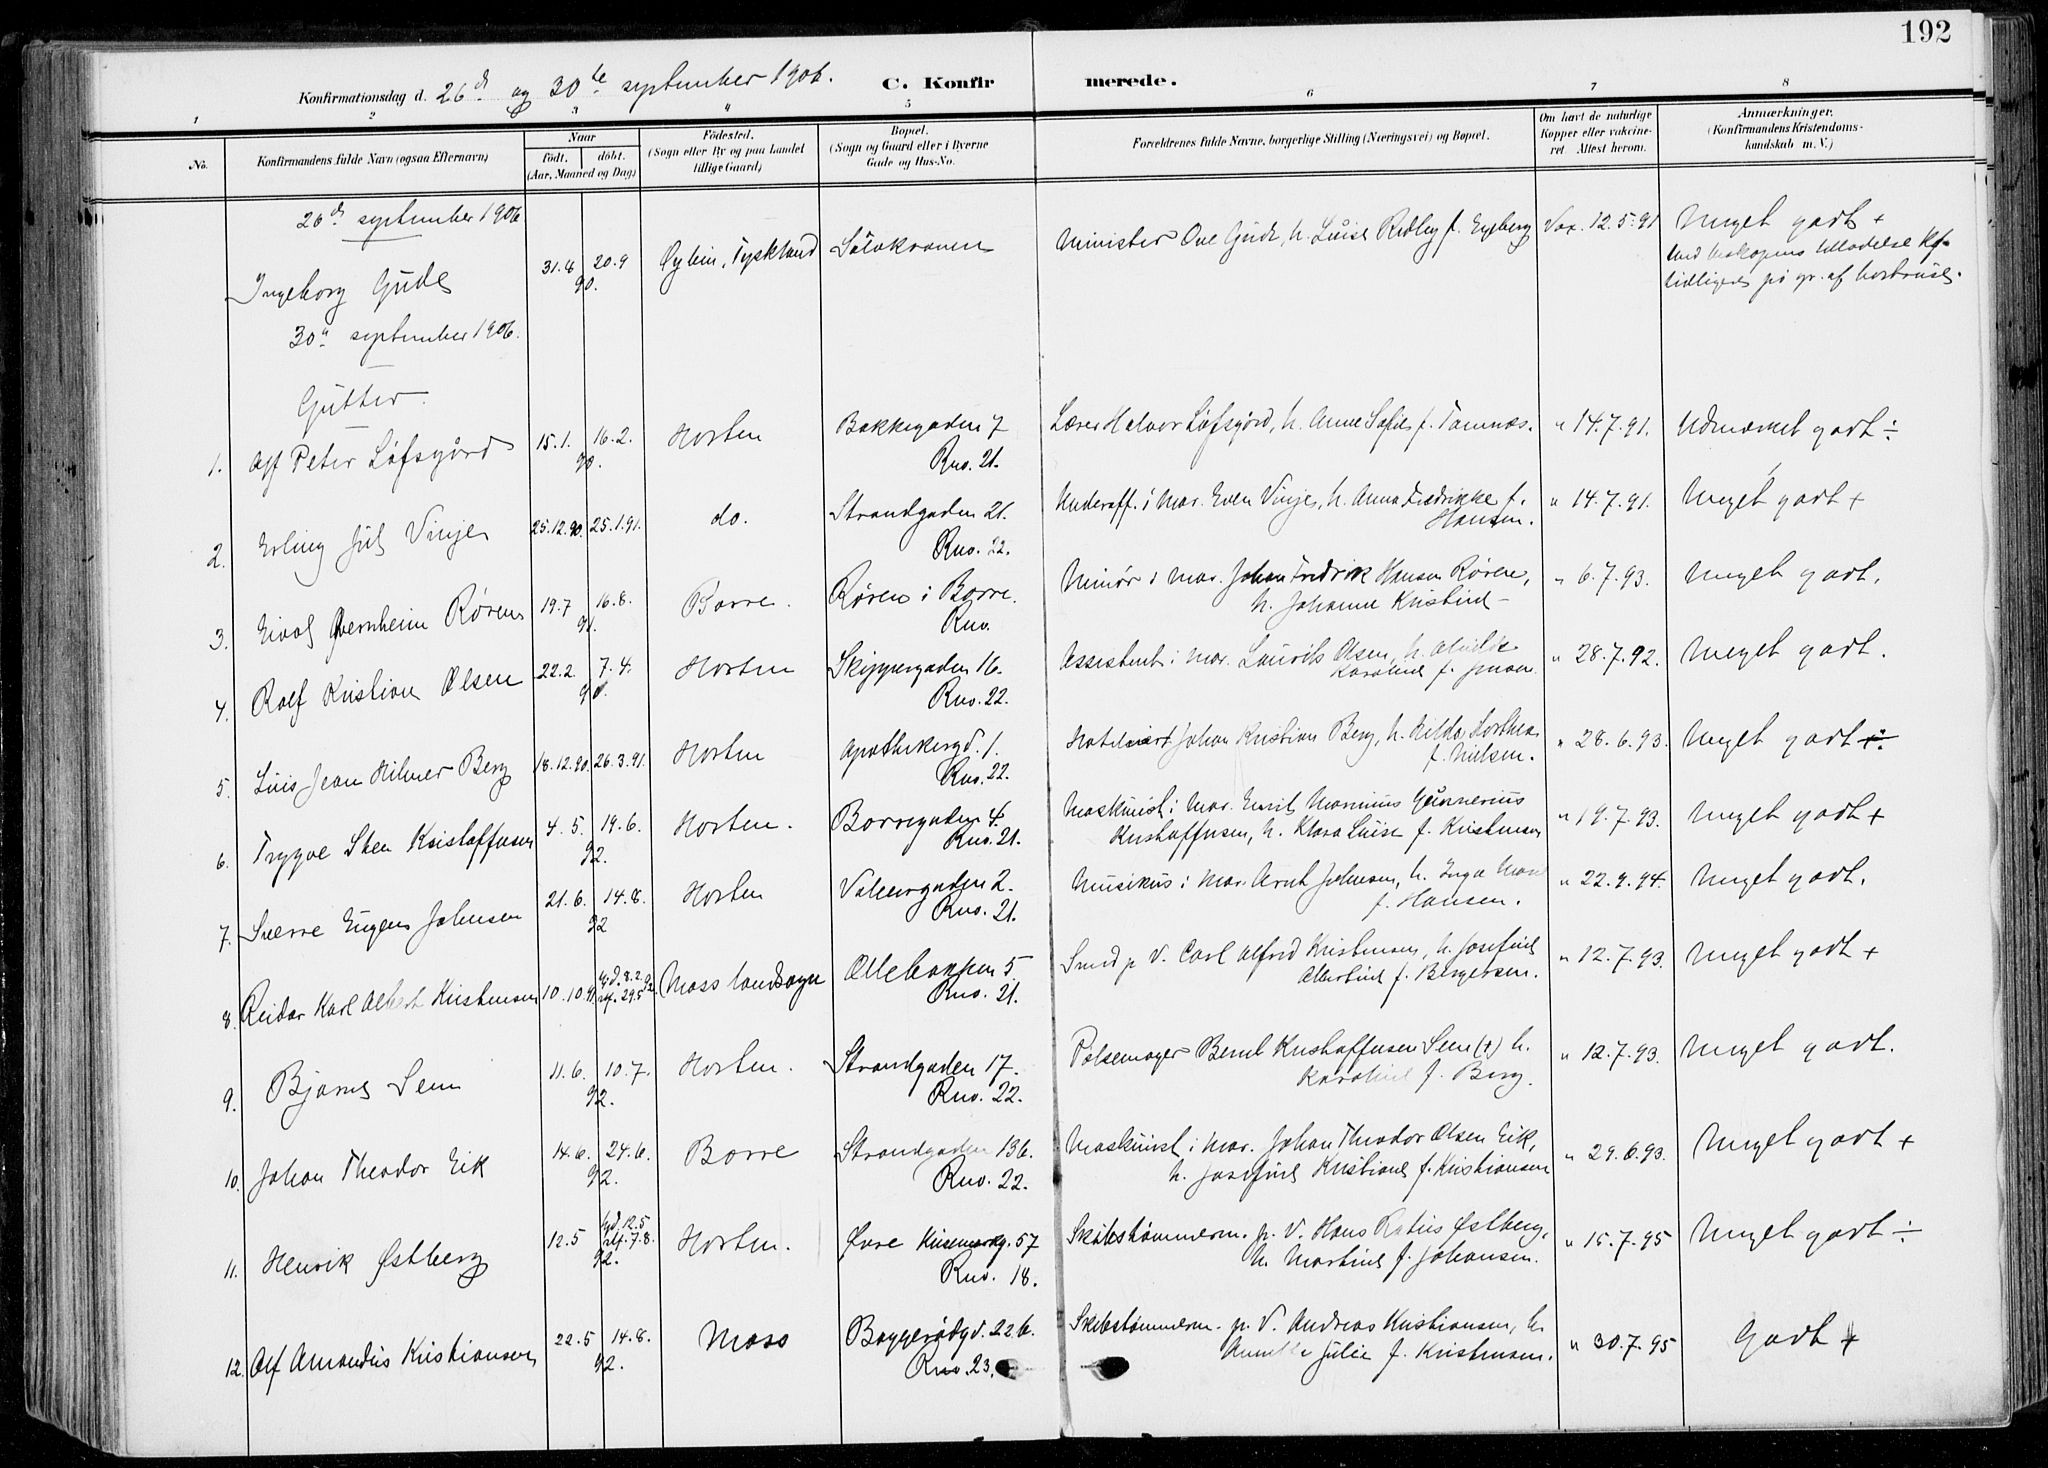 192
Konfirmationsdag d. 26de og 30te september 1906. C. Konfirmerede.
1 2 3 4 5 6 7 8
No. Konfirmandens fulde Navn (ogsaa Efternavn) Naar født. døbt. (Aar, Maaned og Dag) Fødested. (Sogn eller By og paa Landet tillige Gaard) Bopæl. (Sogn og Gaard eller i Byerne Gade og Hus-No. Forældrenes fulde Navne, borgerlige Stilling (Næringsvei) og Bopæl. Om havt de naturlige Kopper eller vakcineret. Attest herom. Anmærkninger. (Konfirmandens Kristendomskundskab m. V.)
26de september 1906
Ingeborg Gude 31.8 20.9 90. Oybin, Tyskland Minister Ove Gude, h. Luise Ridley f. Vax. 12.5.91 Meget godt +
med biskopens tilladelse kf.
tidligere på gr. af bortreise.
30te september 1906.
Gutter.
1. Alf Peter Løfsgård 15.1. 16.2. 90. Horten Bakkegaden 7 Lærer Halvor Løfsgård, h. Anne Sofie f. Tamnæs. " 14.7.91. Udmærket godt ÷
Rno. 21.
2. Erling Jul Vinje 25.12.90. 25.1.91. do. Strandgaden 21. Underoff. i Mar. Even Vinje, h. Anna Fredrikke f. " 14.7.91. Meget godt +
Rno. 22. Hansen.
3. Eivol Røren 19.7 16.8. 91. Borre. Røren i Borre. Minør i Mar. Johan Fredrik Hansen Røren, " 6.7.93. Meget godt.
Rno. h. Johanne Kristine
4. Rolf Kristian Olsen 22.2. 7.4. 91. Horten Skippergaden 16. Assistent i Mar. Laurits Olsen, h. " 28.7.92. Meget godt.
Rno. 22. Karoline f.
5. Luis Jean Hilmer Berg 18.12.90. 26.3.91. Horten Apothekergd. 1. Hotelvært Johan Kristian Berg, h. Hilda Dorthea " 28.6.93. Meget godt
Rno. 22. f. Nilsen.
6. Trygve Sten Kristoffersen 4.5. 19.6. 92. Horten. Borregaden 4. Maskinist i Mar. Emil Marinius Gunnerius " 19.7.93. Meget godt +
Rno. 21. Kristoffersen, h. Klara Luise f. Kristensen
7. Sverre Eugen Johnsen 21.6. 14.8. 92 Horten Volleergaden 2. Musikus i Mar. Arnt Johnsen, h. Inga " 22.9.94. Meget godt.
Rno. 21. f. Hansen.
8. Reidar Karl Albert Kristensen 10.10.91. hjd. 8.2.92. stf. 29.5 Moss landsogn Ollebakken 5 Smed p. V. Carl Alfred Kristensen, h. Josefine " 12.7.93. Meget godt +
Rno. 21. Albertine f. Birgersen.
9. Bjarne Seen 11.6. 10.7. 92. Horten. Strandgaden 17. Pølsemager Bernt Kristoffersen Seen (+) h. " 12.7.93. Meget godt.
Rno. 22. Karoline f. Berg.
10. Johan Theodor Eik 14.6. 24.6. 92. Borre Strandgaden 136. Maskinist i Mar. Johan Theodor Olsen Eik, " 29.6.93. Meget godt +
Rno. 22. h. Josefine Kristiane f. Kristiansen
11. Henrik Østberg 12.5 hjd. 12.5 stf. 7.8. 92. Horten. Øvre Keisemarkg. 57 Skibstømmerm. p. V. Hans Østberg, " 15.7.95 Meget godt ÷
Rno. 18. h. Martine f. Johansen.
12. Alf Amandus Kristiansen 22.5 14.8. 92. Moss Baggerødgd. 22b. Skibstømmerm. p. V. Andreas Kristiansen, h. " 30.7.95 Godt +
Rno. 23. Julie f. Kristensen.